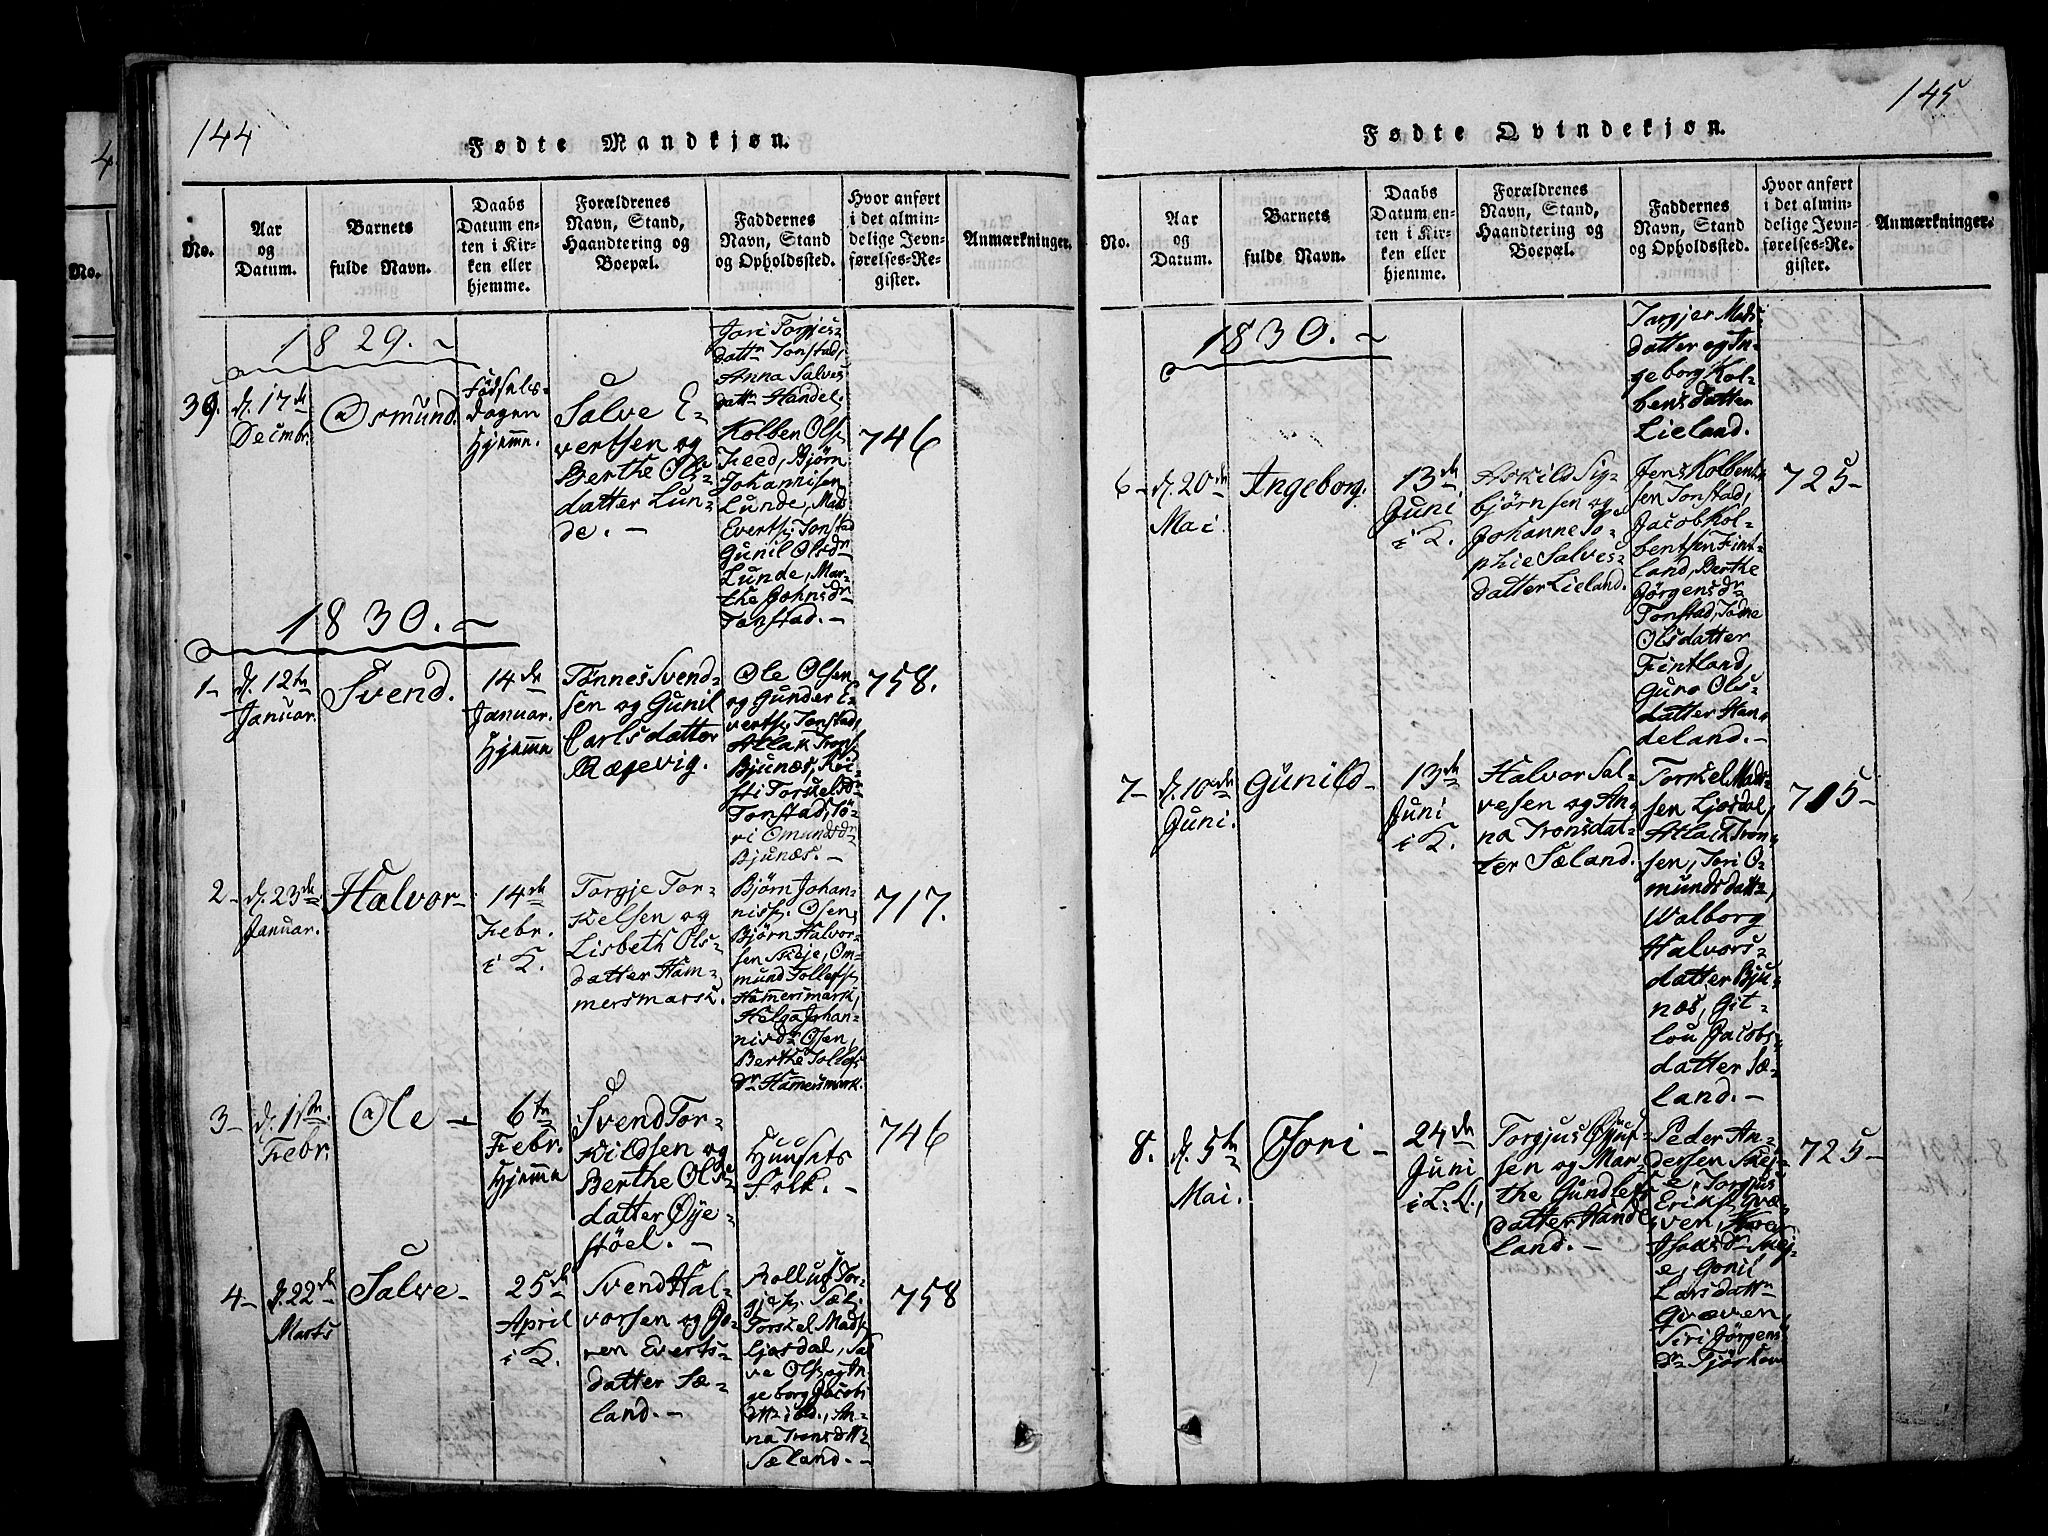 144
Fødte Mandkjøn.
No.
Aar
og
Datum.
Barnets
fulde Navn.
Daabs
Datum en-
ten i Kir-
ken eller
hjemme.
Forældrenes
Navn, Stand,
Haandtering og
Boepæl.
Faddernes
Navn, Stand
og Opholdssted.
Hvor anført
i det almin-
delige Jevn-
førelses-Re-
gister.
Anmærkninger.
1829.
Jori Torgjus-
dattr Tonstad,
Anna Salves
dattr Handel.
39.
d. 17de
Decmbr.
Osmund.
Fødsels-
dagen
Hjemme.
Salve E-
vertsen og
Berthe Ols-
datter Lun-
de.
Kolben Ols.
Feed, Bjørn
Johannisen
Lunde, Mad
Everts. Tonstad
Gunil Olsdr
Lunde, Mar-
the Johnsdr
Tonstad.
746
1830.
1-
d. 12te
Januar.
Svend.
14de
Januar.
Hjemme
Tønnes Svend-
sen og Gunil
Carlsdatter
Røysevig.
Ole Olsen
og Gunder E-
verts. Tonstad,
Atlak Trons.
Bjunæs, Kri-
sti Torkelsdr
Tonstad, Jo-
ri Omundsdr
Bjunæs.
758.
2-
d. 23de
Januar.
Halvor
14de
Febr.
i K.
Torgje Tor-
kelsen og
Lisbeth Ols-
datter Ham-
mersmark.
Bjørn Johan-
niss. Osen,
Bjørn Halvor-
sen Skeje, Om-
mund Tollefs.
Hamersmark,
Helga Johan-
nisdr Osen,
Berthe Tollefs
dr Hamersmark.
717.
3-
d. 1ste
Febr.
Ole
6te
Febr.
Hjemme
Svend Tor-
kildsen og
Berthe Ols-
datter Øye-
støel.
Huusets
Folk.
746
4-
d. 22de
Marts
Salve
25de
April
i K.
Svend Hal-
vorsen og Go-
ren Everts-
datter Sæ-
land.
Rolluf Tor-
gjes. Sæl.
Torkel Mads.
Ljosdal, Sal
ve Ols. og In-
geborg Jacobs
dttr ibd., An-
na Tronsdttr
Sæland.
758
145
Fødte Qvindekjøn.
No.
Aar
og
Datum.
Barnets
fulde Navn.
Daabs
Datum en-
ten i Kir-
ken eller
hjemme.
Forældrenes
Navn, Stand,
Haandtering og
Boepæl.
Faddernes
Navn, Stand
og Opholdssted.
Hvor anført
i det almin-
delige Jevn-
førelses-Re-
gister.
Anmærkninger.
1830.
Targjer Mads-
datter og In-
geborg Kol-
bensdatter
Lieland.
6-
d. 20de
Mai
Ingeborg.
13de
Juni
i K.
Askild Sig-
bjørnsen og
Johanne So-
phie Salves-
datter Lieland.
Jens Kolbent-
sen Tonstad,
Jacob Kol-
bentsen Fint-
land, Berthe
Jørgensdr
Tonstad, Tone
Olsdatter
Fintland,
Guro Ols-
datter Han-
deland.
725
7-
d. 10de
Juni.
Gunild
13de
Juni
i K.
Halvor Sal-
vesen og An-
na Tronsdat-
ter Sæland.
Torkel Mad-
sen Ljosdal,
Atlak Tron-
sen, Jori O-
mundsdattr,
Walborg
Halvors-
datter Bju-
næs, Git-
lou Jacobs-
datter Sæ-
land.
705
8.
d. 5te
Mai.
Jori
24de
Juni
i L. K.,
Torgjus Øyuf-
sen og Mar-
the Gundlefs
datter Hande
land.
Peder An-
dersen Skej-
e, Torgjus
Eriks. Qvæ-
ven, Karen
Isaksdr Skej-
e, Gonil
Larsdattr
Qvæven,
Siri Jørgens
dr Tjørhom
725